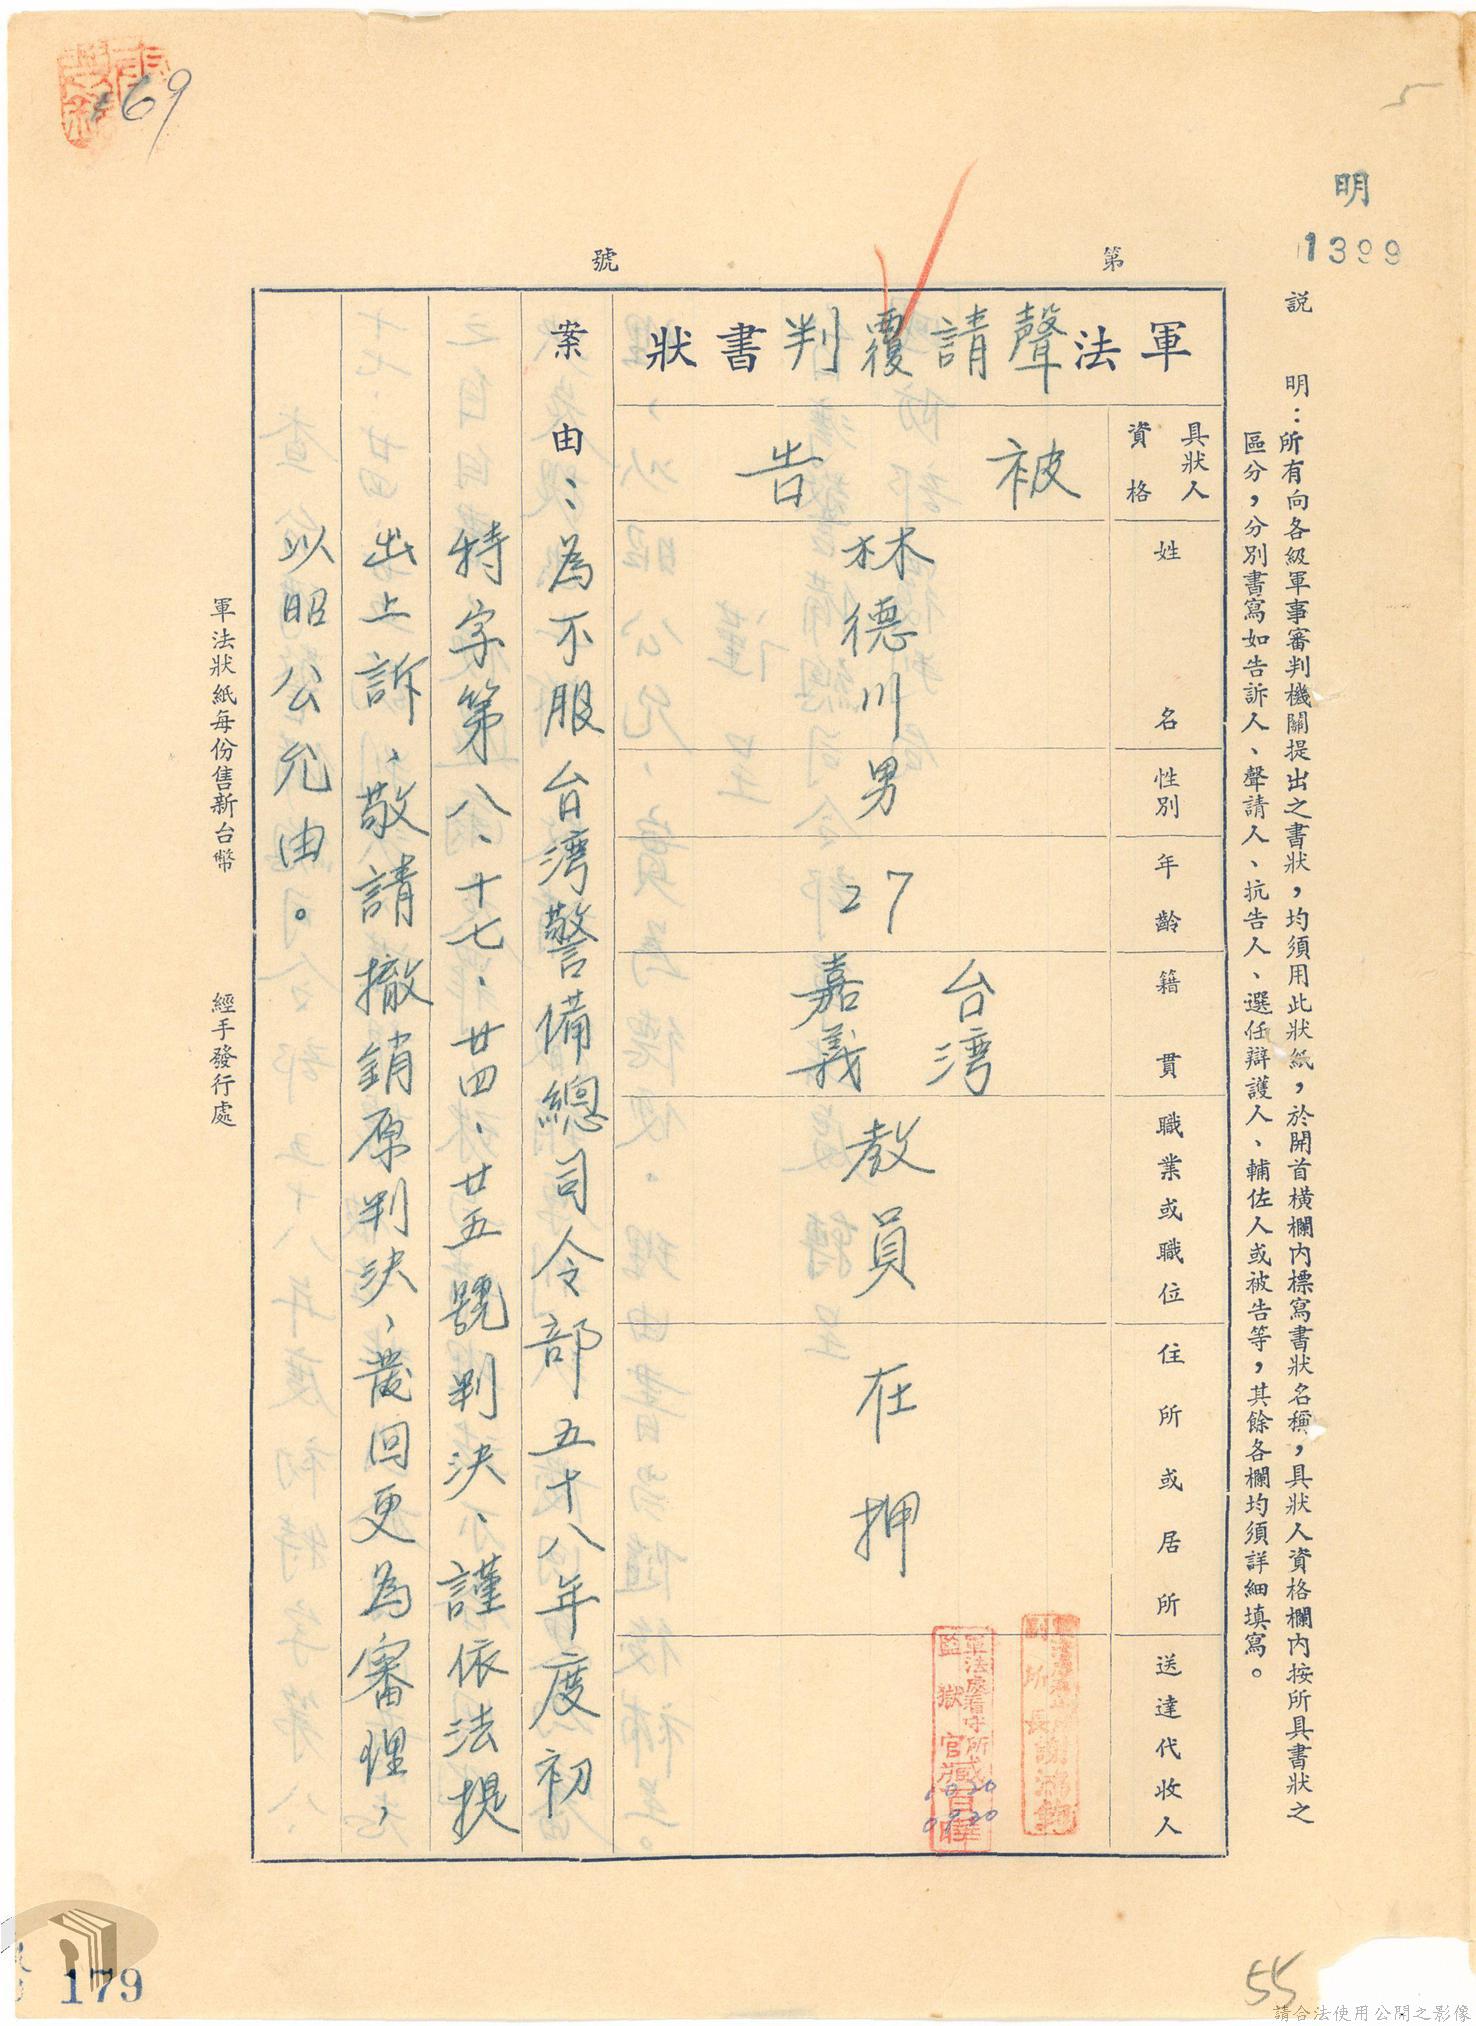 169
5
明
1399
第
號
說明：所有向各級軍事審判機關提出之書狀，均須用此狀紙，於開首橫欄內標寫書狀名稱，具狀人資格欄內按所具書狀之
區分，分別書寫如告訴人、聲請人、抗告人、選任辯護人、輔佐人或被告等，其餘各欄均須詳細填寫。
軍法聲請覆判書狀
具狀人
資格
姓名
性別
年齡
籍貫
職業或職位
住所或居所
送達代收人
被告
林德川
男
27
台湾
嘉義
教員
在押
副所長謝鴻鈞
軍法處看守所
監獄官臧
案由：為不服台湾警備總司令部五十八年度初
特字第八、十七、廿四、廿五號判決、謹依法提
出上訴、敬請撤銷原判決、發回更為審理，
以昭公允由。
軍法狀紙每份售新台幣
經手發行處
179
55
請合法使用公開之影像